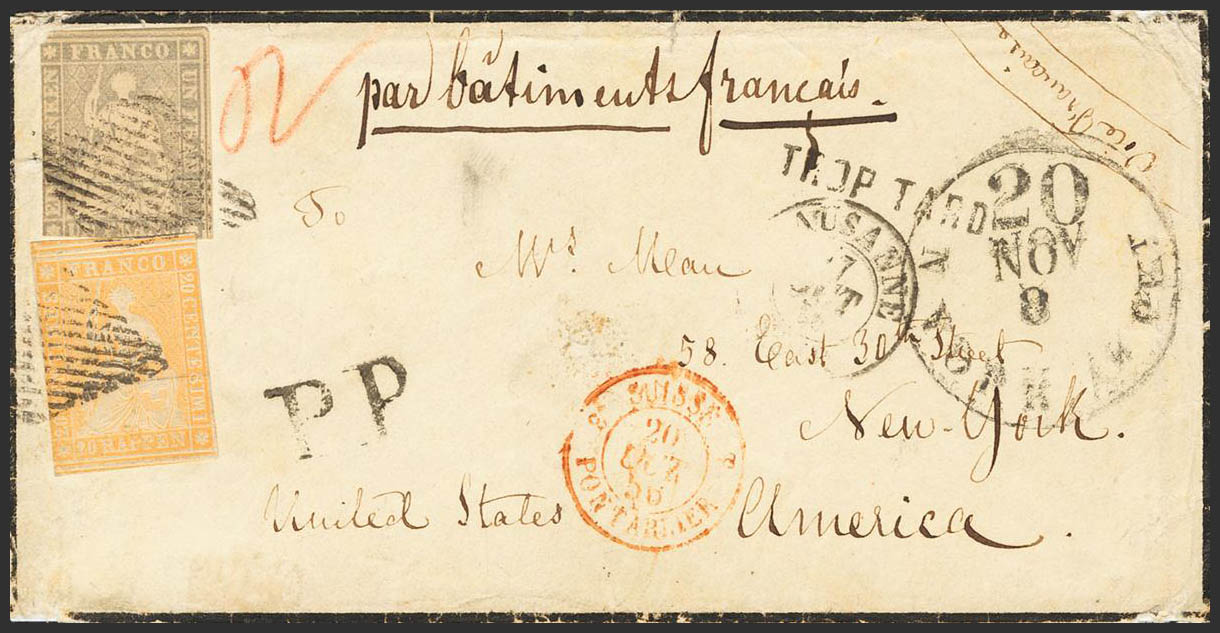 FRANCO
2
par bâtiments français.
Voie Française
TROP TARD
20
NOV
8
LAUSANNE
17
To
Mrs. Mean
FRANCO
20 CENTESIMI
20 RAPPEN
58 East 30th Street
PP
SUISSE
20
OCT
PONTARLIER
New-York.
United States America.